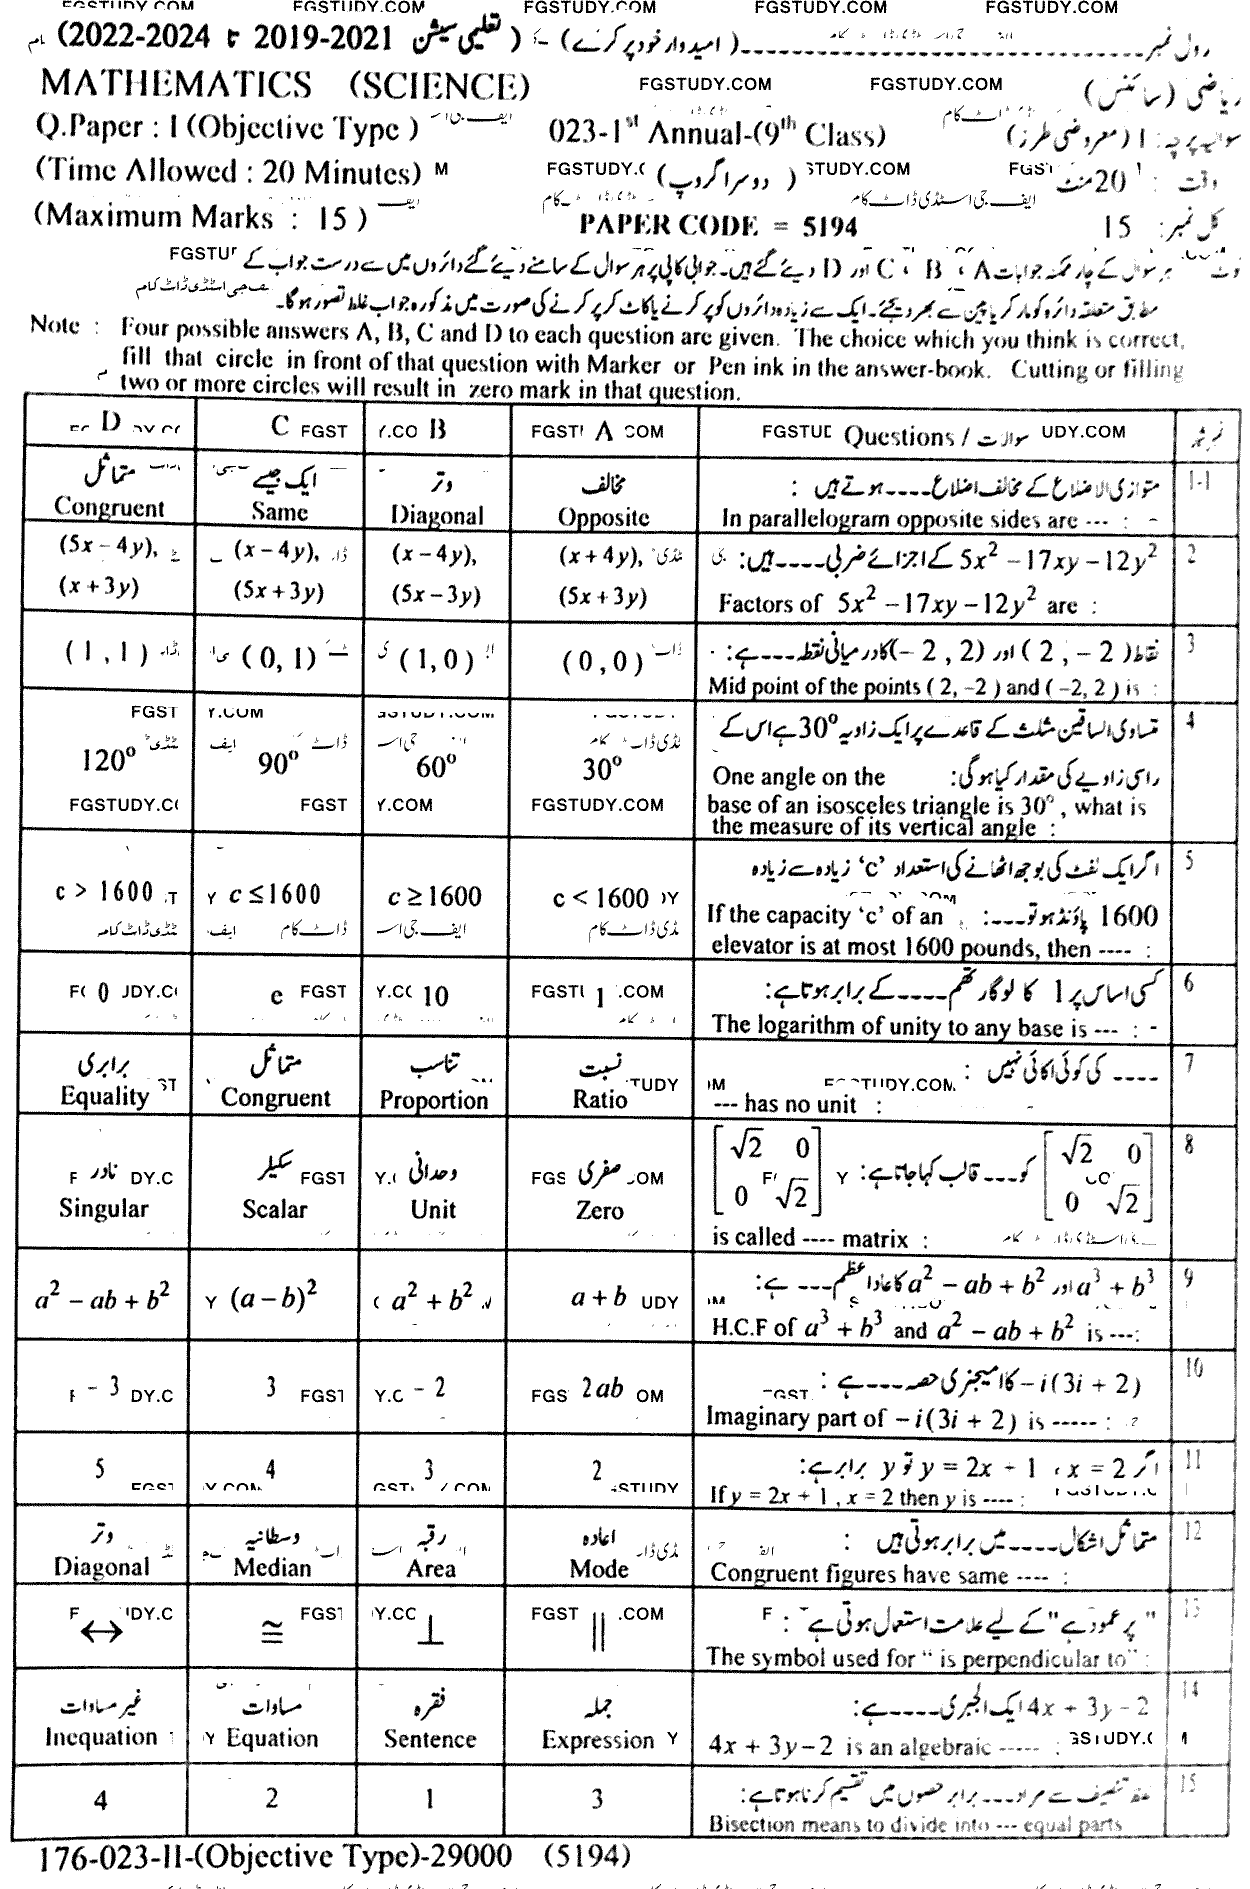 FGSTUDY.COM FGSTUDY.COM FGSTUDY.COM FGSTUDY.COM FGSTUDY.COM
رول نمبر ---------- (امیدوار خود پر کرے) (تعلیمی سیشن 2019-2021 تا 2022-2024)
MATHEMATICS (SCIENCE) FGSTUDY.COM FGSTUDY.COM ریاضی (سائنس)
Q.Paper : I (Objective Type ) 023-1st Annual-(9th Class) سوالیہ پرچہ : I (معروضی طرز)
(Time Allowed : 20 Minutes) (دوسرا گروپ) وقت : 20 منٹ
(Maximum Marks : 15 ) PAPER CODE = 5194 کل نمبر : 15
نوٹ ہر سوال کے چار ممکنہ جوابات A ، B ، C اور D دیئے گئے ہیں۔ جوابی کاپی پر ہر سوال کے سامنے دیئے گئے دائروں میں سے درست جواب کے
مطابق متعلقہ دائرہ کو مارکر یا پین سے بھر دیجئے۔ ایک سے زیادہ دائروں کو پر کرنے یا کاٹ کر پر کرنے کی صورت میں مذکورہ جواب غلط تصور ہوگا۔
Note : Four possible answers A, B, C and D to each question are given. The choice which you think is correct,
fill that circle in front of that question with Marker or Pen ink in the answer-book. Cutting or filling
two or more circles will result in zero mark in that question.
D C B A Questions / سوالات نمبر شمار
متماثل ایک جیسے وتر مخالف متوازی الاضلاع کے مخالف اضلاع ---- ہوتے ہیں : 1-1
Congruent Same Diagonal Opposite In parallelogram opposite sides are --- :
(5x − 4y), (x − 4y), (x − 4y), (x + 4y), 5x² − 17xy − 12y² کے اجزائے ضربی ---- ہیں: 2
(x + 3y) (5x + 3y) (5x − 3y) (5x + 3y) Factors of 5x² − 17xy − 12y² are :
(1 , 1) (0, 1) (1, 0) (0, 0) نقاط (2 , −2) اور (−2 , 2) کا درمیانی نقطہ --- ہے: 3
Mid point of the points ( 2, −2 ) and ( −2, 2 ) is :
متساوی الساقین مثلث کے قاعدے پر ایک زاویہ 30° ہے اس کے 4
120° 90° 60° 30° راسی زاویے کی مقدار کیا ہوگی: One angle on the
base of an isosceles triangle is 30° , what is
the measure of its vertical angle :
اگر ایک لفٹ کی بوجھ اٹھانے کی استعداد 'c' زیادہ سے زیادہ 5
c > 1600 c ≤ 1600 c ≥ 1600 c < 1600 1600 پاؤنڈ ہو تو ---: If the capacity 'c' of an
elevator is at most 1600 pounds, then ---- :
0 e 10 1 کسی اساس پر 1 کا لوگارتھم ---- کے برابر ہوتا ہے: 6
The logarithm of unity to any base is --- :
برابری متماثل تناسب نسبت ---- کی کوئی اکائی نہیں : 7
Equality Congruent Proportion Ratio --- has no unit :
نادر سکیلر وحدانی صفری [√2 0 0 √2] کو --- قالب کہا جاتا ہے: [√2 0 0 √2] 8
Singular Scalar Unit Zero is called ---- matrix :
a² − ab + b² (a − b)² a² + b² a + b a³ + b³ اور a² − ab + b² کا عاد اعظم --- ہے: 9
H.C.F of a³ + b³ and a² − ab + b² is ---:
− 3 3 − 2 2ab −i(3i + 2) کا امیجنری حصہ --- ہے : 10
Imaginary part of −i(3i + 2) is ----- :
5 4 3 2 اگر x = 2 ، y = 2x + 1 تو y برابر ہے: 11
If y = 2x + 1 , x = 2 then y is ---- :
وتر وسطانیہ رقبہ اعادہ متماثل اشکال ---- میں برابر ہوتی ہیں : 12
Diagonal Median Area Mode Congruent figures have same ---- :
↔ ≅ ⊥ || "پر عمود ہے" کے لیے علامت استعمال ہوتی ہے : 13
The symbol used for " is perpendicular to" :
غیر مساوات مساوات فقرہ جملہ 4x + 3y − 2 ایک الجبری ---- ہے: 14
Inequation Equation Sentence Expression 4x + 3y − 2 is an algebraic ----- :
4 2 1 3 خط تنصیف سے مراد --- برابر حصوں میں تقسیم کرنا ہوتا ہے: 15
Bisection means to divide into --- equal parts
176-023-II-(Objective Type)-29000 (5194)